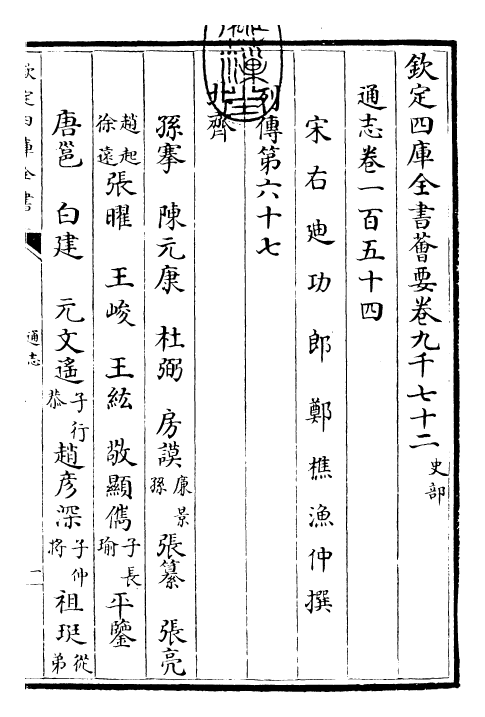 欽定四庫全書薈要卷九千七十二 史部
通志卷一百五十四
宋右迪功郎鄭樵漁仲撰
列傳第六十七
北齊
孫搴 陳元康 杜弼 房謨 康景孫 張纂 張亮
趙起 徐遠 張曜 王峻 王紘 敬顯儁 子長瑜 平鑒
唐邕 白建 元文遙 子行恭 趙彥深 子仲將 祖珽 從弟
欽定四庫全書
通志